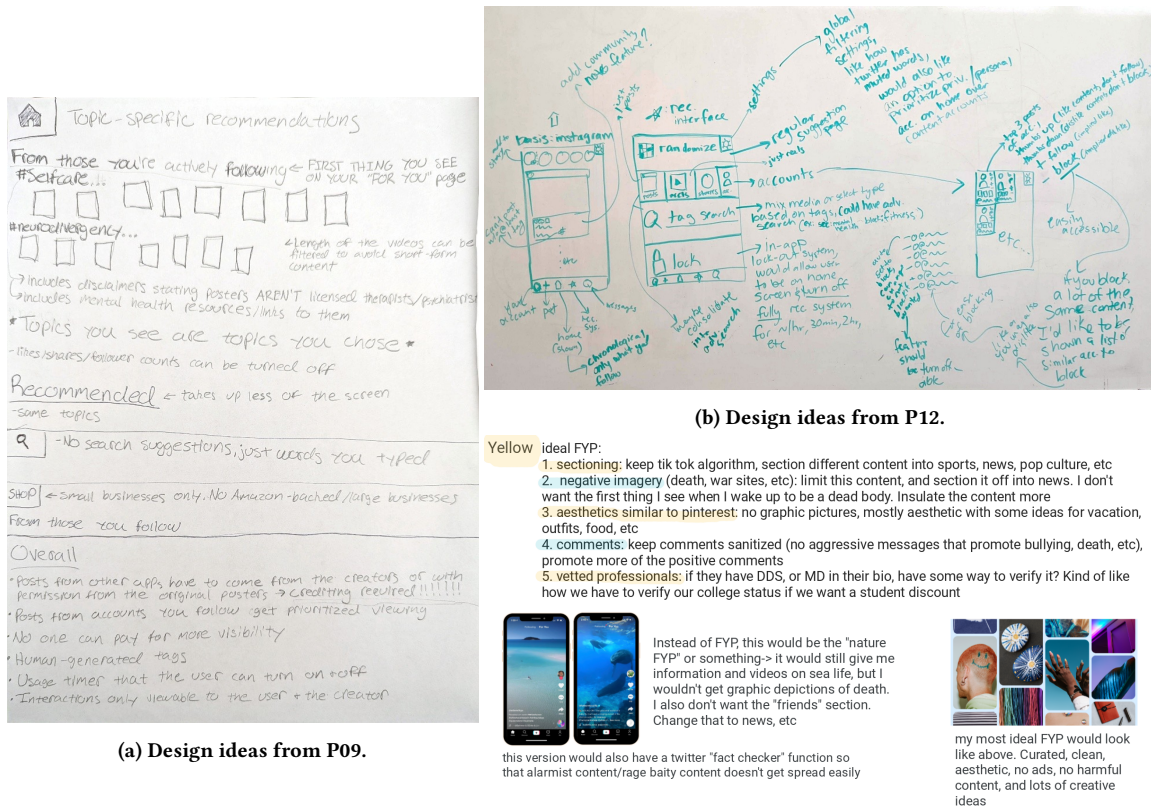 Topic-specific recommendations
From those you're actively following ← FIRST THING YOU SEE
ON YOUR "FOR YOU" page
#Selfcare...
#neurodivergency...
← Length of the videos can be
filtered to avoid short-form
content
→ includes disclaimers stating posters AREN'T licensed therapists/psychiatrist
→ includes mental health resources/links to them
* Topics you see are topics you chose *
- likes/shares/follower counts can be turned off
Recommended ← takes up less of the screen
- same topics
- No search suggestions, just words you typed
SHOP ← small businesses only. No Amazon-backed/large businesses
From those you follow
Overall
• Posts from other apps have to come from the creators or with
permission from the original posters → crediting required!!!!!!!
• Posts from accounts you follow get prioritized viewing
• No one can pay for more visibility
• Human-generated tags
• Usage timer that the user can turn on + off
• Interactions only viewable to the user + the creator
(a) Design ideas from P09.
add community
notes feature?
just
posts
basis: instagram
etc
home
(shown)
chronological
only what you
follow
rec.
sys.
messages
rec.
interface
randomize
posts
reels
tag search
lock
settings
global
filtering
settings,
like how
twitter has
muted words,
would also like
an option to
prioritize priv./personal
acc. on home over
content accounts
regular
suggestion
page
just reels
accounts
mix media or select type
based on tags, (could have adv.
in-app
lock-out system,
would allow user
to be on home
screen & turn off
fully rec system
for 1 hr, 30min, 2hr,
etc
top 3 posts
of acc.
etc...
easily
accessible
if you block
a lot of the
same content,
I'd like to be
shown a list of
similar acc to
block
feature
should
be turn off-
able
(b) Design ideas from P12.
Yellow
ideal FYP:
1. sectioning: keep tik tok algorithm, section different content into sports, news, pop culture, etc
2. negative imagery (death, war sites, etc): limit this content, and section it off into news. I don't
want the first thing I see when I wake up to be a dead body. Insulate the content more
3. aesthetics similar to pinterest: no graphic pictures, mostly aesthetic with some ideas for vacation,
outfits, food, etc
4. comments: keep comments sanitized (no aggressive messages that promote bullying, death, etc),
promote more of the positive comments
5. vetted professionals: if they have DDS, or MD in their bio, have some way to verify it? Kind of like
how we have to verify our college status if we want a student discount
Instead of FYP, this would be the "nature
FYP" or something-> it would still give me
information and videos on sea life, but I
wouldn't get graphic depictions of death.
I also don't want the "friends" section.
Change that to news, etc
this version would also have a twitter "fact checker" function so
that alarmist content/rage baity content doesn't get spread easily
my most ideal FYP would look
like above. Curated, clean,
aesthetic, no ads, no harmful
content, and lots of creative
ideas